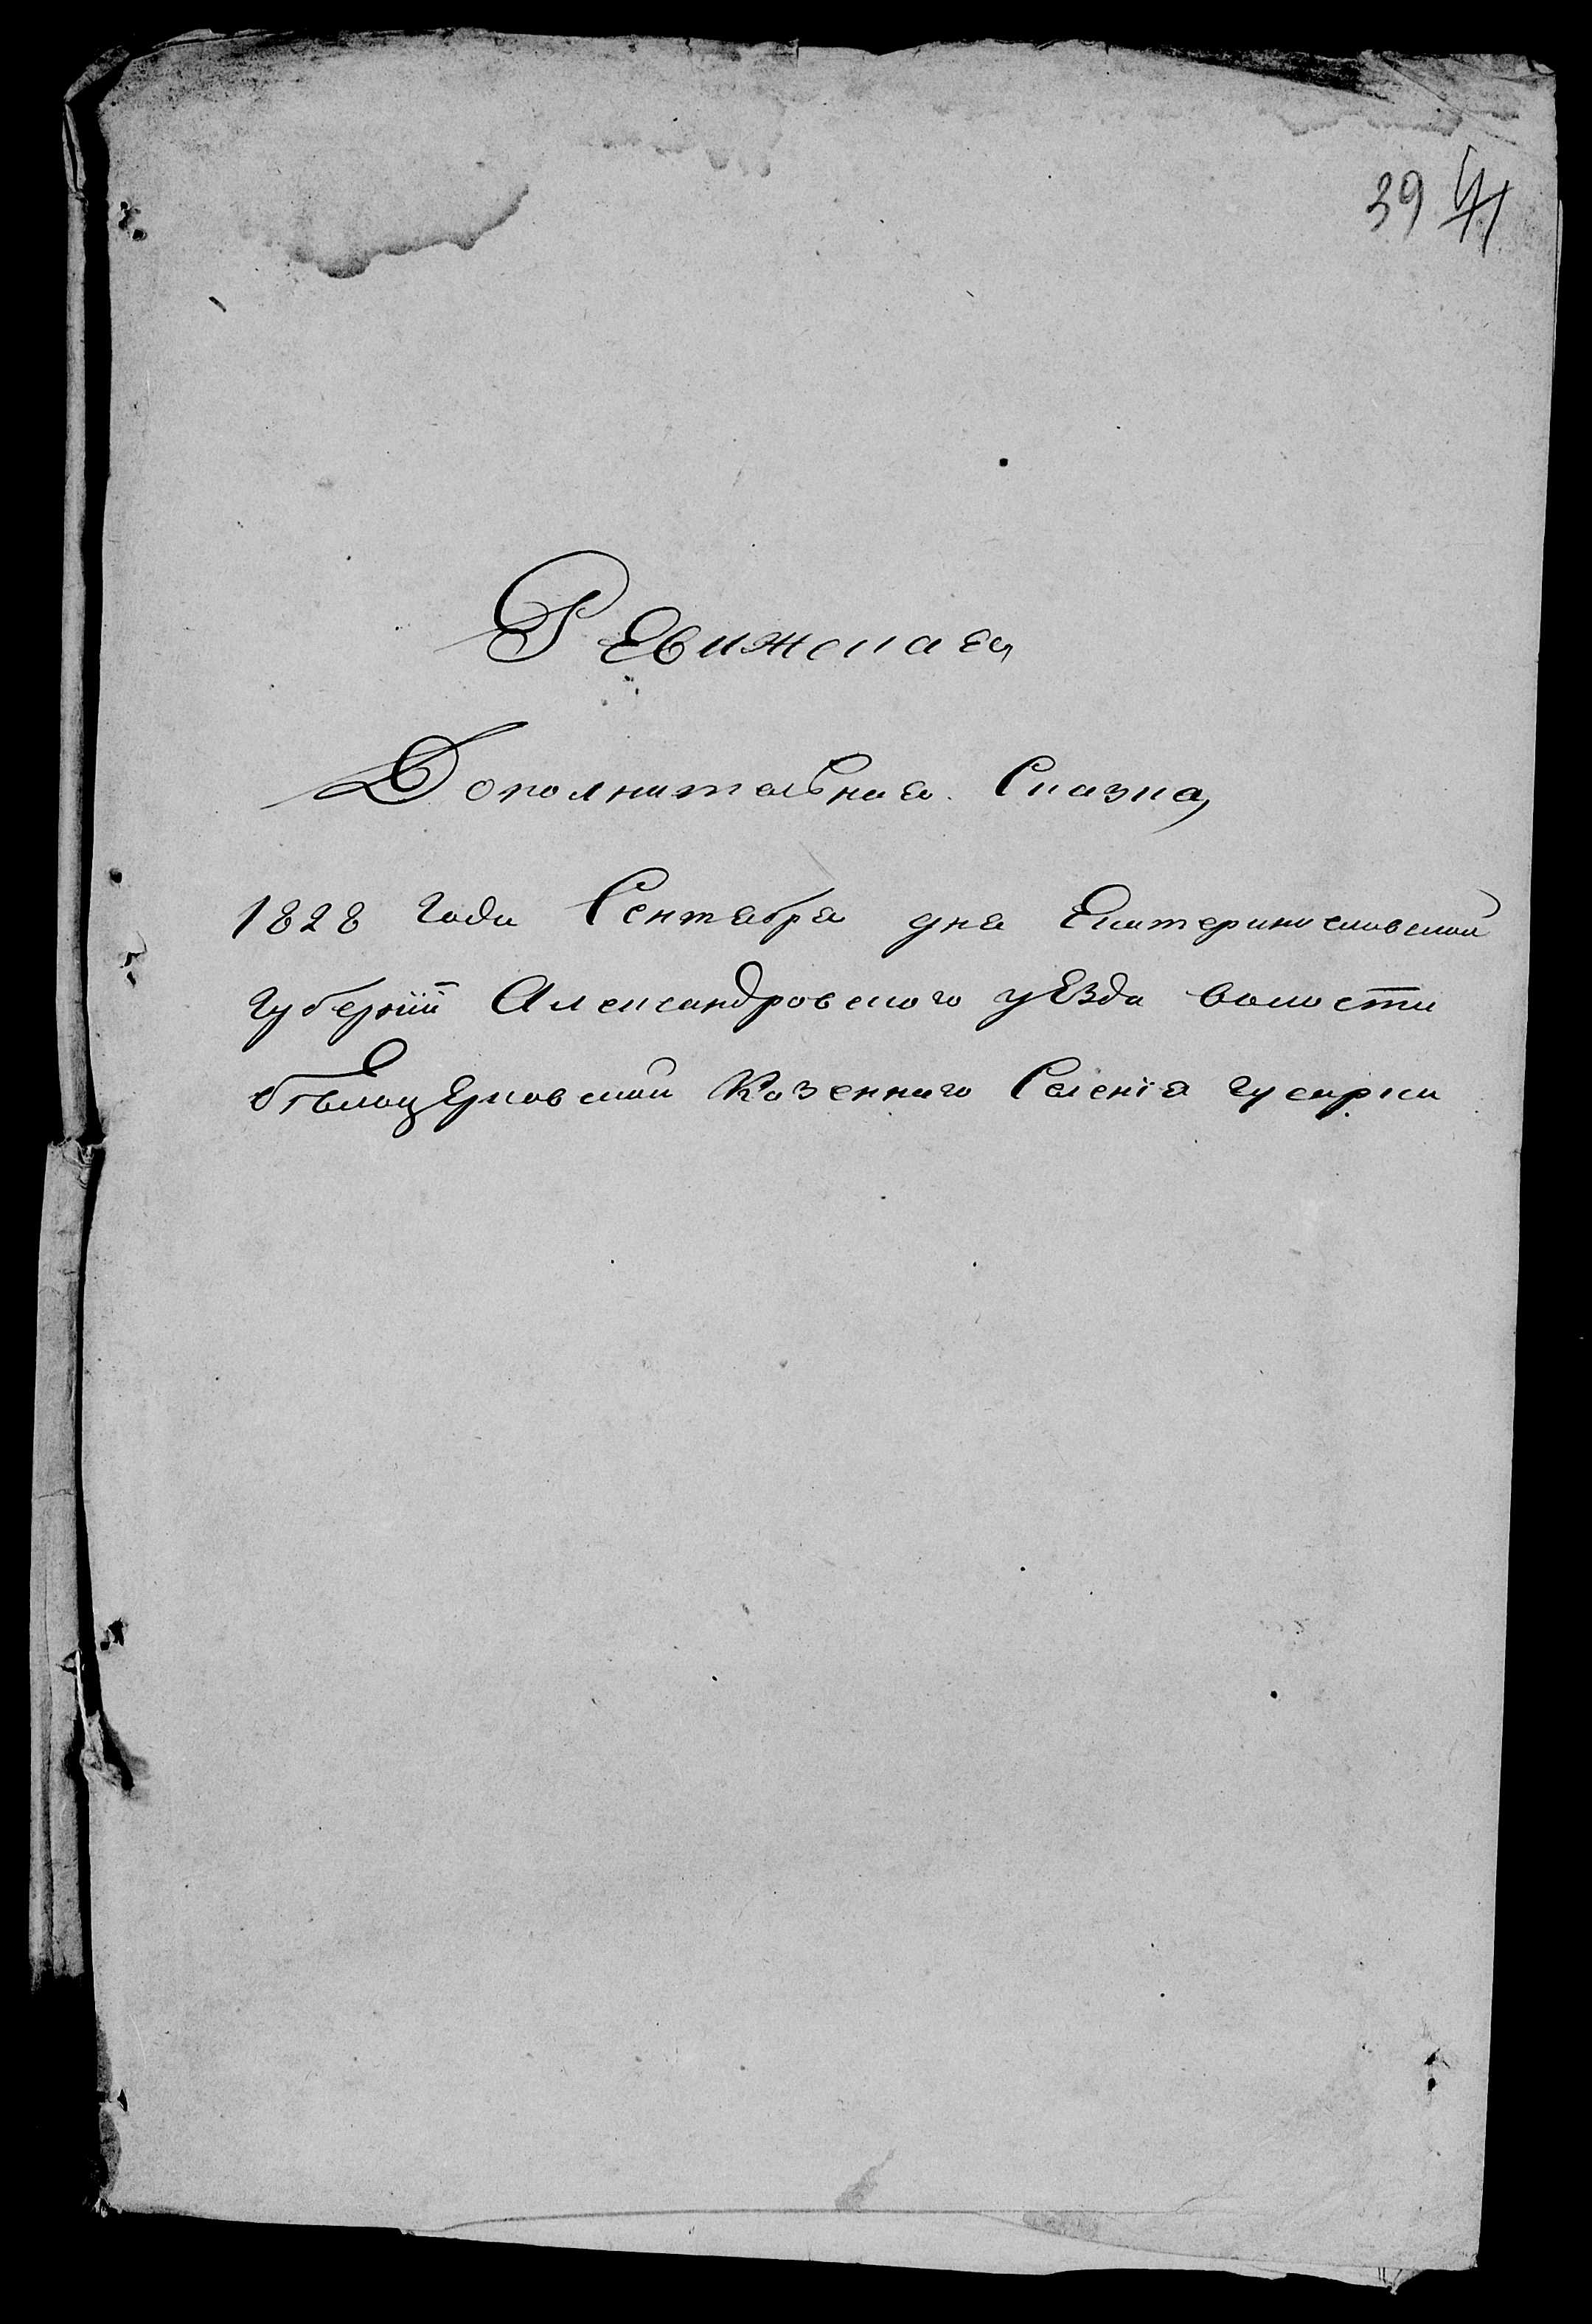 39 41
Ревижская
Дополнительная Сказка
1828 года Сентебря дня Екатеринославской
губернiи Александровского уезда волости
бѣлоцерковской Казенного Селенiя гусарки